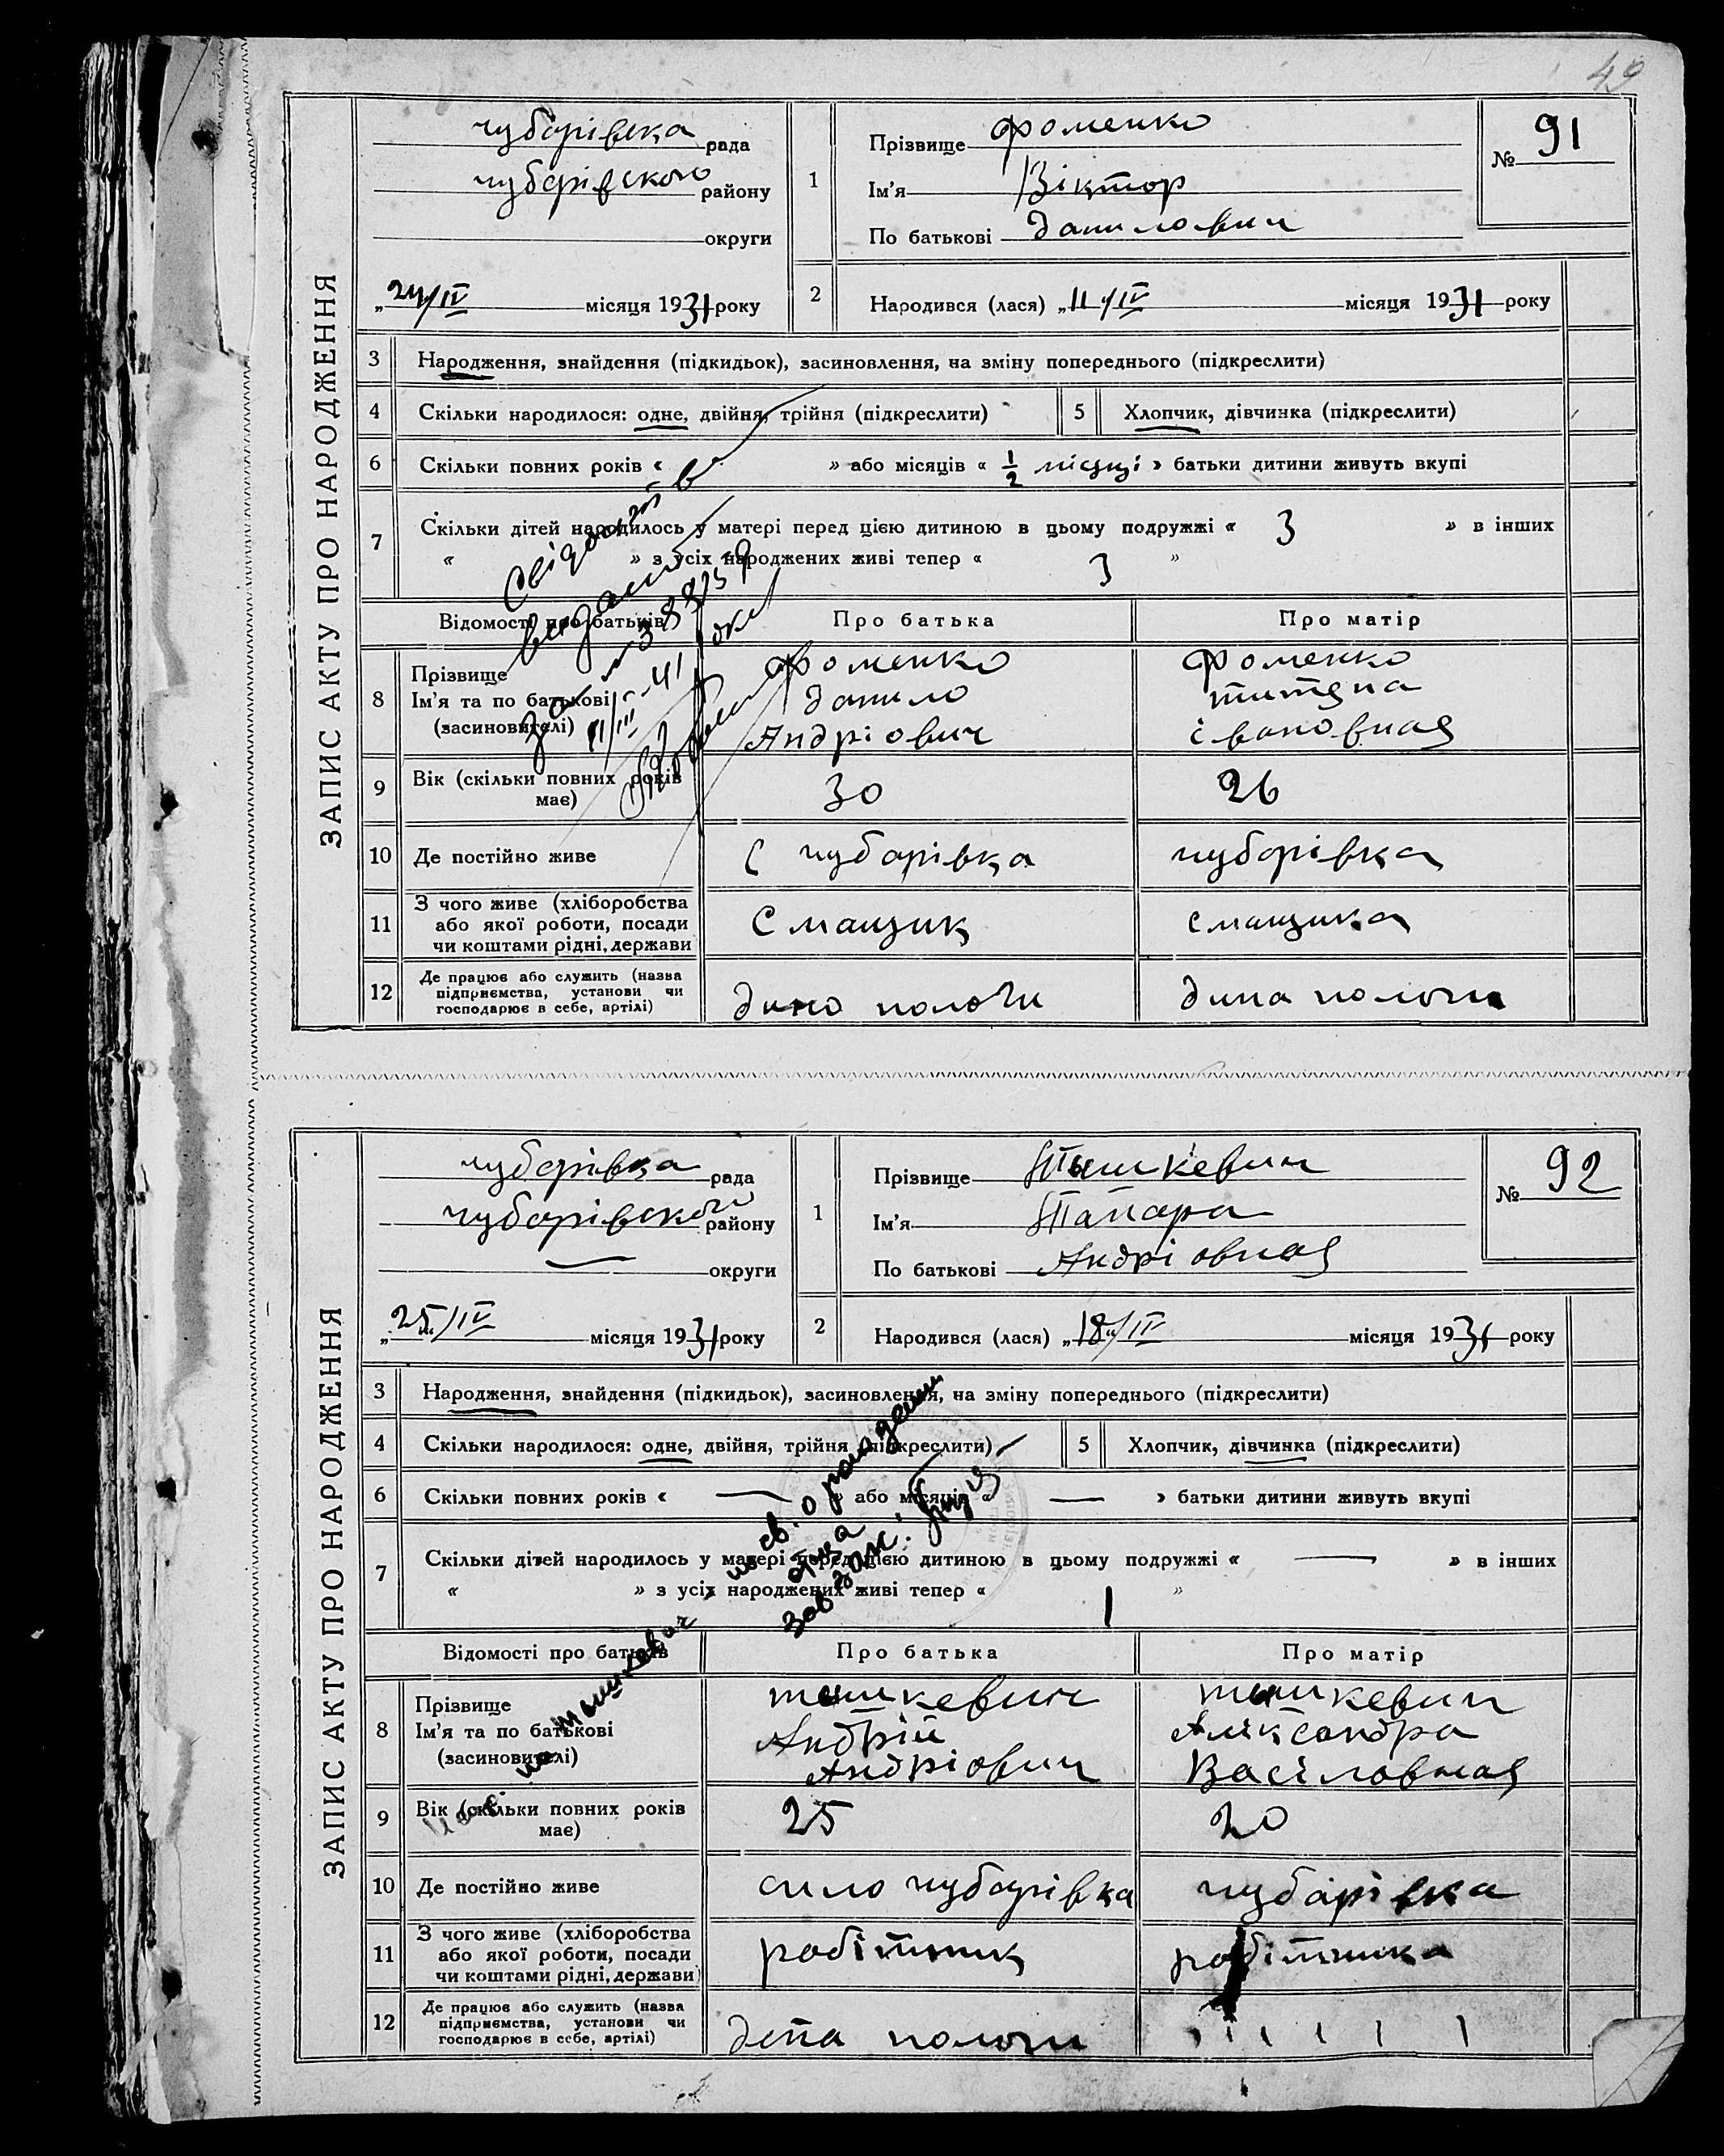 49
ЗАПИС АКТУ ПРО НАРОДЖЕННЯ
чубарівка рада
чубарівского району
округи
„24/IV місяця 1931 року
1
Прізвище Фоменко
Ім'я Віктор
По батькові Данилович
№ 91
2
Народився (лася) „11/IV місяця 1931 року
3 Народження, знайдення (підкидьок), засиновлення, на зміну попереднього (підкреслити)
4 Скільки народилося: одне, двійня, трійня (підкреслити)
5 Хлопчик, дівчинка (підкреслити)
6 Скільки повних років « » або місяців « 1/2 місяці » батьки дитини живуть вкупі
7 Скільки дітей народилось у матері перед цією дитиною в цьому подружжі « 3 » в інших
« » з усіх народжених живі тепер « 3 »
Відомості про батьків
Про батька
Про матір
8 Прізвище
Ім'я та по батькові
(засиновителі)
Фоменко
Данило
Андріович
Фоменко
івановная
9 Вік (скільки повних років
має)
30
26
10 Де постійно живе
С чубарівка
чубарівка
11 З чого живе (хліборобства
або якої роботи, посади
чи коштами рідні, держави
Смащик
смащика
12 Де працює або служить (назва
підприємства, установи чи
господарює в себе, артілі)
пологи
пологи
ЗАПИС АКТУ ПРО НАРОДЖЕННЯ
чубарівка рада
чубарівского району
— округи
„25/IV місяця 1931 року
1
Прізвище Тышкевич
Ім'я Тамара
По батькові Андріовная
№ 92
2
Народився (лася) „18/IV місяця 1931 року
3 Народження, знайдення (підкидьок), засиновлення, на зміну попереднього (підкреслити)
4 Скільки народилося: одне, двійня, трійня (підкреслити)
5 Хлопчик, дівчинка (підкреслити)
6 Скільки повних років « — » або місяців « — » батьки дитини живуть вкупі
7 Скільки дітей народилось у матері перед цією дитиною в цьому подружжі « — » в інших
« » з усіх народжених живі тепер « 1 »
Відомості про батьків
Про батька
Про матір
8 Прізвище
Ім'я та по батькові
(засиновителі)
тышкевич
Андрій
Андріович
тышкевич
Аліксандра
Васіловная
9 Вік (скільки повних років
має)
25
20
10 Де постійно живе
сило чубарівка
чубарівка
11 З чого живе (хліборобства
або якої роботи, посади
чи коштами рідні, держави)
робітник
робітника
12 Де працює або служить (назва
підприємства, установи чи
господарює в себе, артілі)
депа пологи